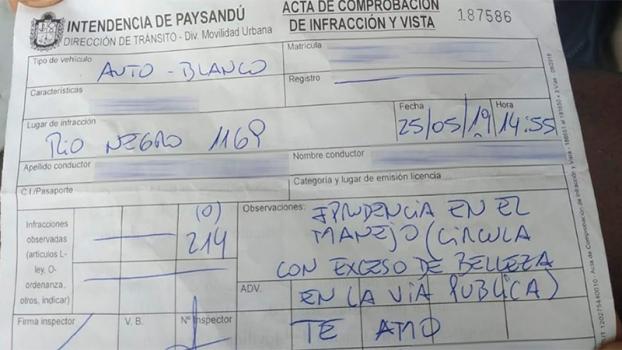 INTENDENCIA DE PAYSANDÚ
DIRECCIÓN DE TRÁNSITO - Div. Movilidad Urbana
ACTA DE COMPROBACIÓN
DE INFRACCIÓN Y VISTA
187586
Tipo de vehículo
AUTO - BLANCO
Matrícula
Registro
Características
Lugar de infracción
RIO NEGRO 1169
Fecha
25/05/19
Hora
14:55
Apellido conductor
Nombre conductor
C.I/Pasaporte
Categoría y lugar de emisión licencia
Infracciones
observadas
(artículos L-
ley, O-
ordenanza,
otros, indicar)
(O)
214
Observaciones:
IPRUDENCIA EN EL
MANEJO (CIRCULA
CON EXCESO DE BELLEZA
EN LA VIA PUBLICA)
TE AMO
ADV.
Firma inspector
V. B.
Nº Inspector